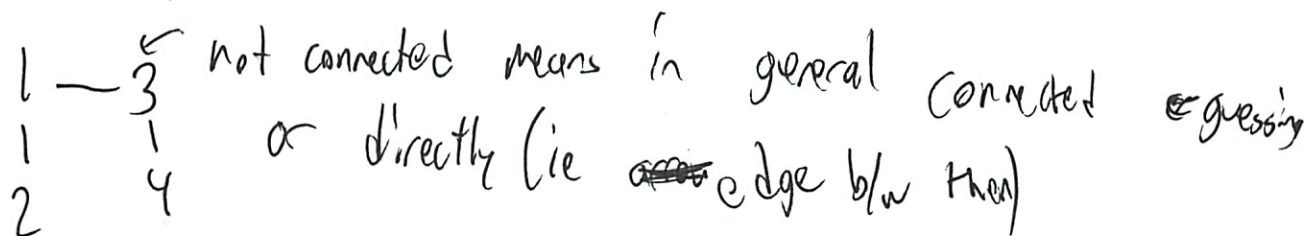 1 — 3 ← not connected means in general connected ← guessing
| | or directly (ie edge b/w them)
2 4